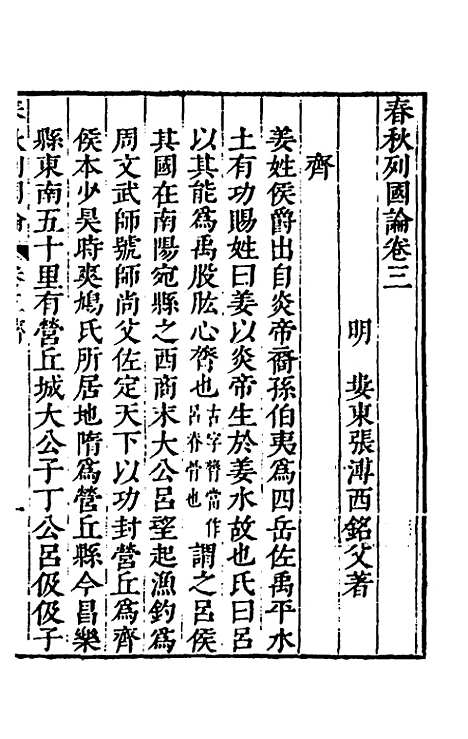 春秋列國論卷三
明 婁東張溥西銘父著
齊
姜姓侯爵出自炎帝裔孫伯夷爲四岳佐禹平水
土有功賜姓曰姜以炎帝生於姜水故也氏曰呂
以其能爲禹股肱心膂也古字膂當作呂脊骨也謂之呂侯
其國在南陽宛縣之西商末大公呂望起漁釣爲
周文武師號師尚父佐定天下以功封營丘爲齊
侯本少昊時爽鳩氏所居地隋爲營丘縣今昌樂
縣東南五十里有營丘城大公子丁公呂伋伋子